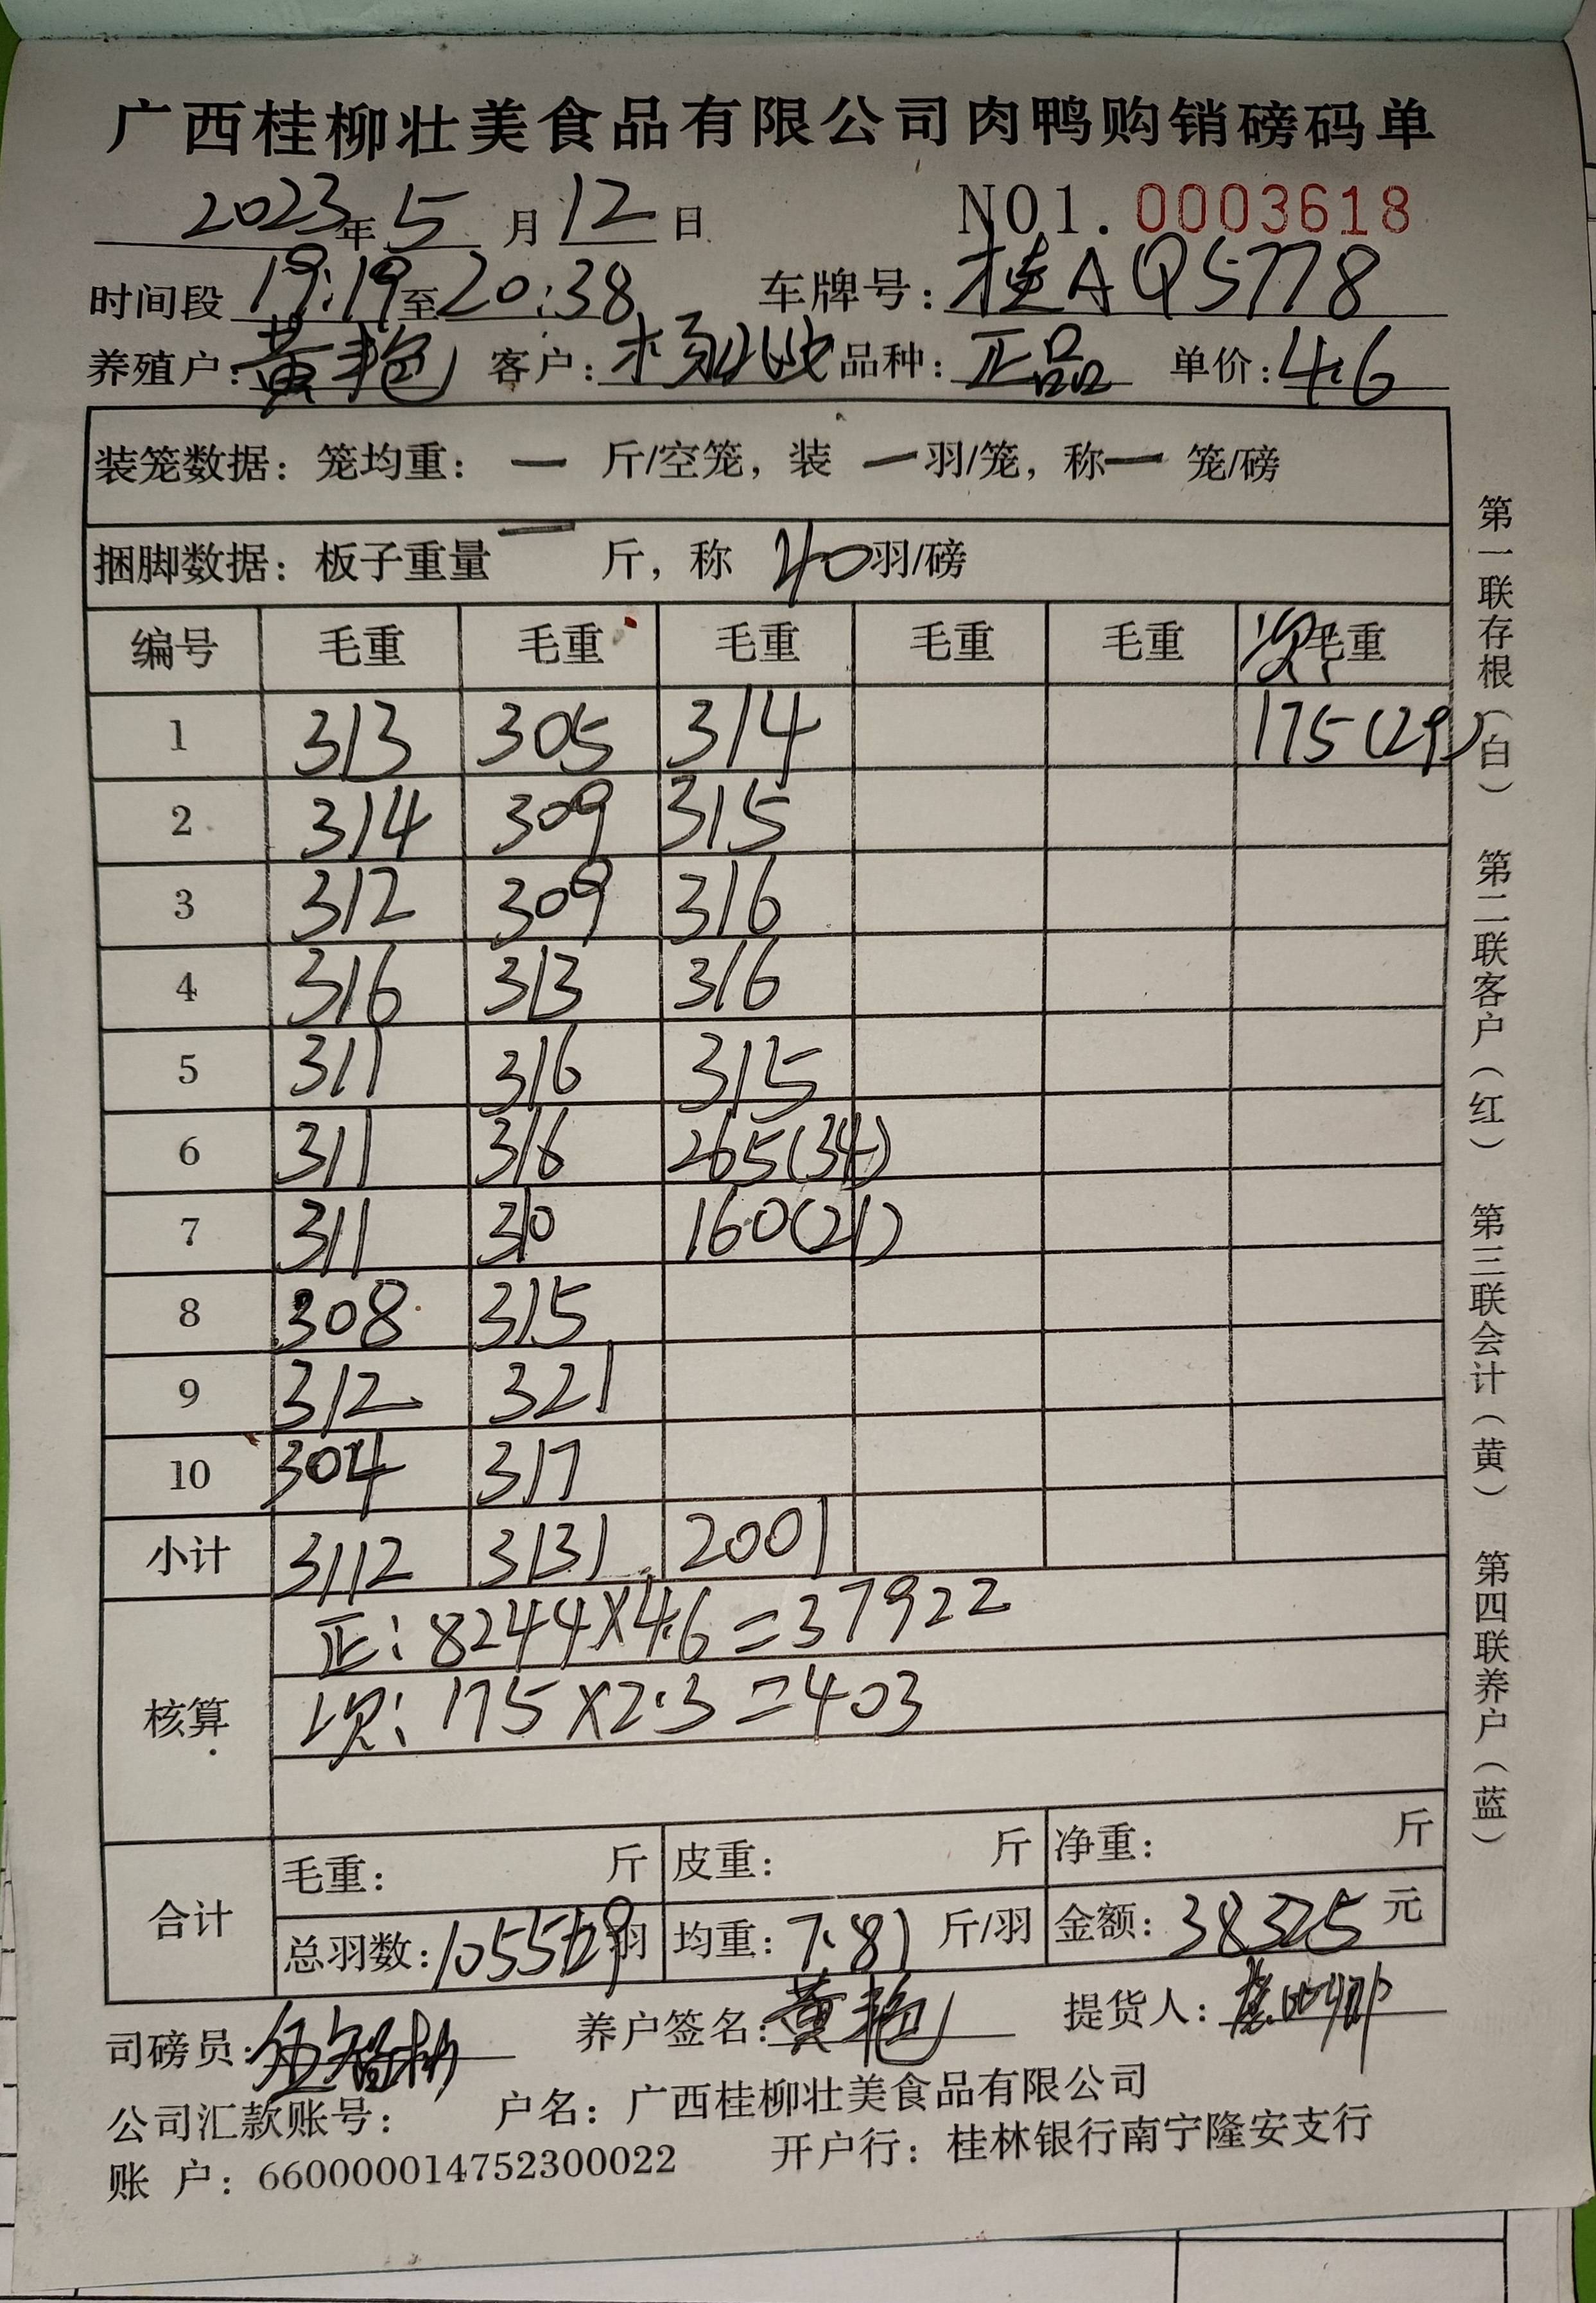 广西桂柳壮美食品有限公司肉鸭购销磅码单
2023年5月12日 NO1.0003618
时间段 19:19至20:38 车牌号:桂AQ5778
养殖户:黄艳 客户:杨 品种:正品 单价:4.6
装笼数据:笼均重: 一 斤/空笼,装 一 羽/笼,称 一 笼/磅
捆脚数据:板子重量 一 斤,称 40 羽/磅
编号 毛重 毛重 毛重 毛重 毛重 次 毛重
1 313 305 314 175(29)
2 314 309 315
3 312 309 316
4 316 313 316
5 311 316 315
6 311 316 265(34)
7 311 310 160(21)
8 308 315
9 312 321
10 304 317
小计 3112 3131 2001
核算 正:8244×4.6=37922
次:175×2.3=403
合计 毛重: 斤 皮重: 斤 净重: 斤
总羽数:1055+29羽 均重:7.81 斤/羽 金额:38325 元
司磅员: 养户签名:黄艳 提货人:
公司汇款账号: 户名:广西桂柳壮美食品有限公司
账 户:660000014752300022 开户行:桂林银行南宁隆安支行
第一联存根(白) 第二联客户(红) 第三联会计(黄) 第四联养户(蓝)